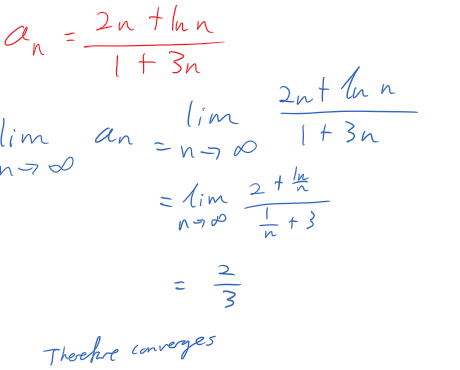 a_n = \frac{2n + \ln n}{1 + 3n}
\lim_{n \to \infty} a_n = \lim_{n \to \infty} \frac{2n + \ln n}{1 + 3n}
= \lim_{n \to \infty} \frac{2 + \frac{\ln}{n}}{\frac{1}{n} + 3}
= \frac{2}{3}
Therefore converges